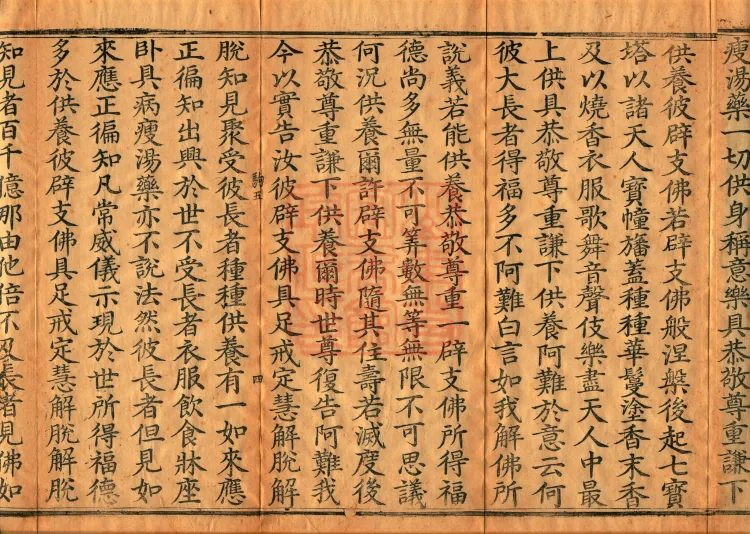 瘦湯藥一切供身稱意樂具恭敬尊重謙下
供養彼辟支佛若辟支佛般涅槃後起七寶
塔以諸天人寶幢旛蓋種種華鬘塗香末香
及以燒香衣服歌舞音聲伎樂盡天人中最
上供具恭敬尊重謙下供養阿難於意云何
彼大長者得福多不阿難白言如我解佛所
說義若能供養恭敬尊重一辟支佛所得福
德尚多無量不可筭數無等無限不可思議
何況供養爾許辟支佛隨其住壽若滅度後
恭敬尊重謙下供養爾時世尊復告阿難我
今以實告汝彼辟支佛具足戒定慧解脫解
四
脫知見聚受彼長者種種供養有一如來應
正徧知出興於世不受長者衣服飲食牀座
卧具病瘦湯藥亦不說法然彼長者但見如
來應正徧知凡常威儀示現於世所得福德
多於供養彼辟支佛具足戒定慧解脫解脫
知見者百千億那由他倍不及長者見佛如